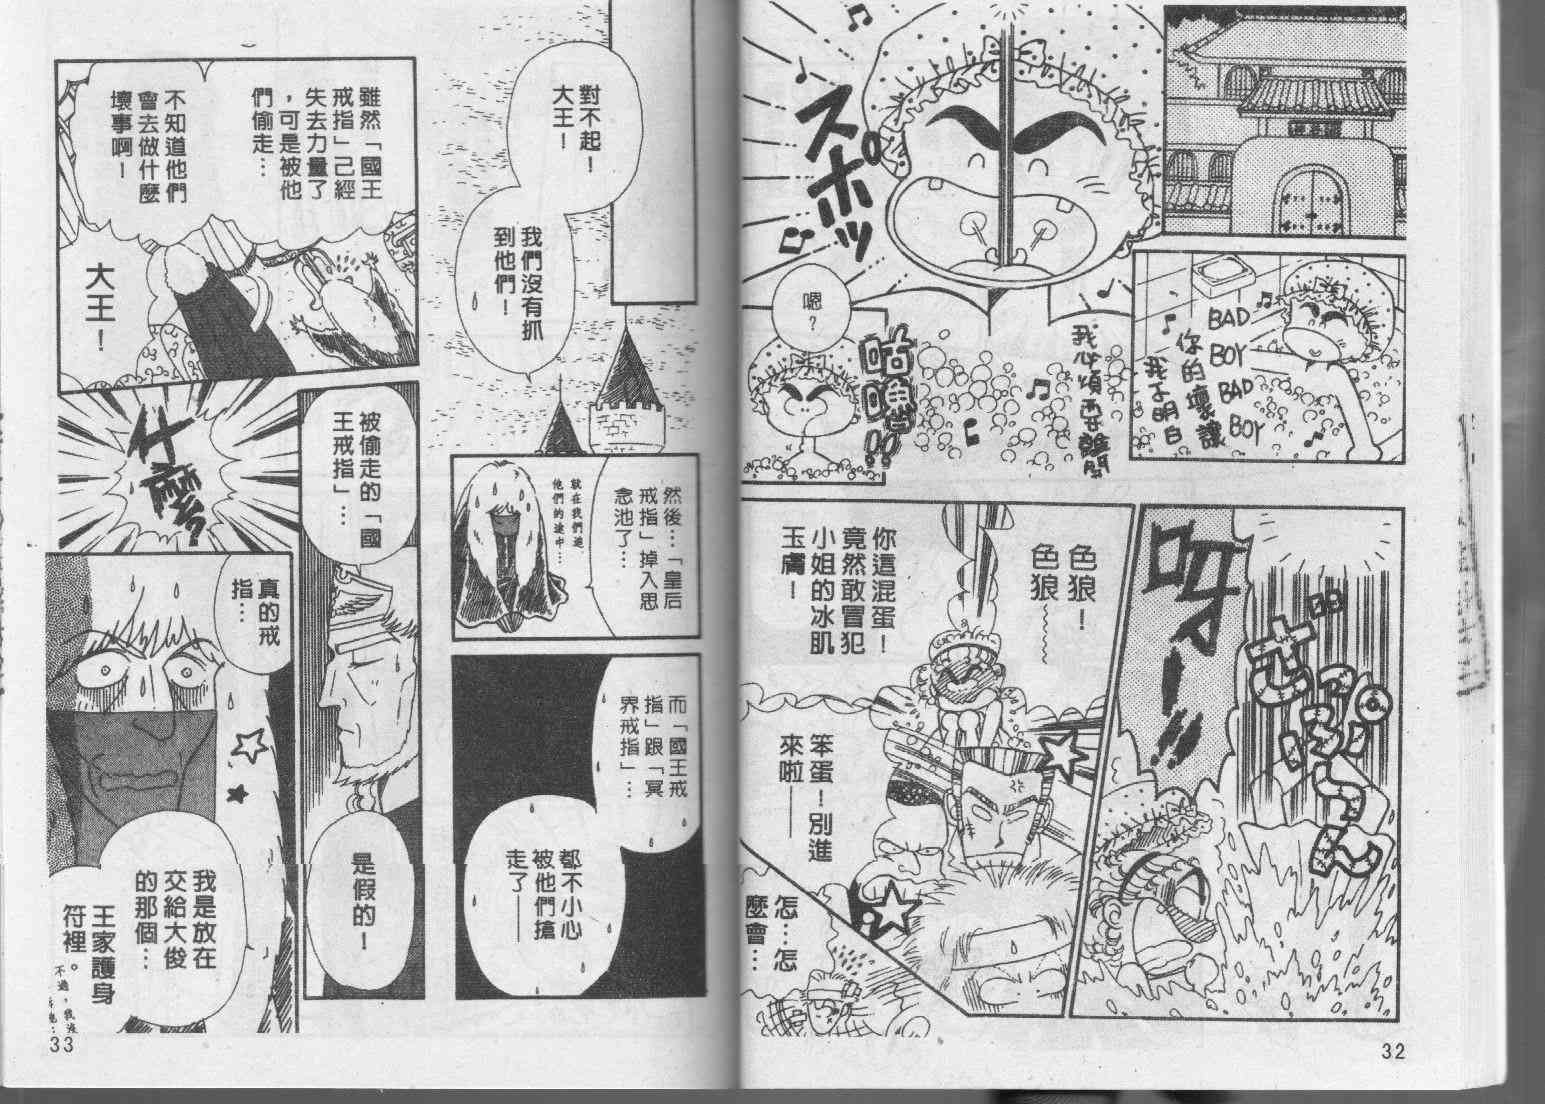 BAD
BOY
BAD
BOY
你的壞讓
我不明白
我心煩要離開
スポッ
嗯?
咕嚕!!
呀——!!
ざっぱーん
色狼!
色狼~~~
你這混蛋!
竟然敢冒犯
小姐的冰肌
玉膚!
笨蛋!別進
來啦——
怎…怎
麼會…
32
對不起!
大王!
我們沒有抓
到他們!
然後…「皇后
戒指」掉入思
念池了…
就在我們追
他們的途中…
而「國王戒
指」跟「冥
界戒指」…
都不小心
被他們搶
走了——
雖然「國王
戒指」已經
失去力量了
,可是被他
們偷走…
不知道他們
會去做什麼
壞事啊!
大王!
被偷走的「國
王戒指」…
是假的!
什麼?
真的戒
指…
我是放在
交給大俊
的那個…
王家護身
符裡。
不過,我沒
33